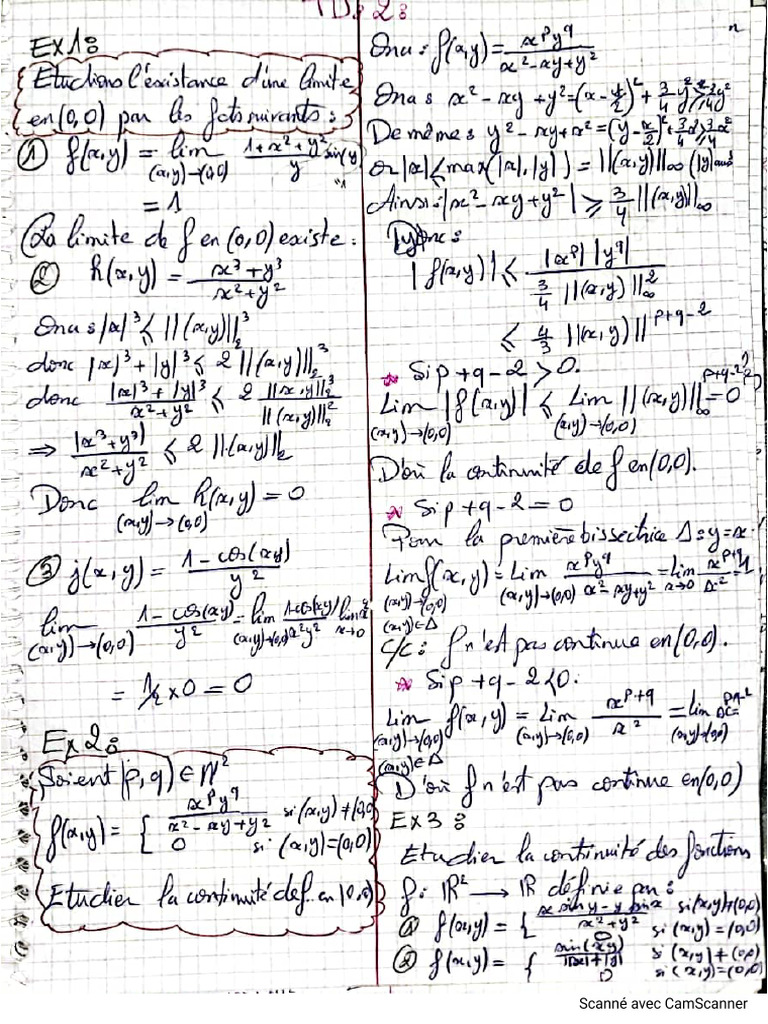 TD: 2:
Ex1:
Etudions l'existance d'une limite
en (0,0) par les fcts suivants :
① f(x,y) = lim (x,y)→(0,0) (1+x²+y²)/y sin(y)
"1
= 1
La limite de f en (0,0) existe.
② h(x,y) = (x³+y³)/(x²+y²)
Ona : |x|³ ≤ ||(x,y)||₂³
donc |x|³+|y|³ ≤ 2 ||(x,y)||₂³
donc (|x|³+|y|³)/(x²+y²) ≤ 2 ||(x,y)||₂³/||(x,y)||₂²
⇒ |x³+y³|/(x²+y²) ≤ 2 ||(x,y)||₂
Donc lim (x,y)→(0,0) h(x,y) = 0
③ j(x,y) = (1-cos(xy))/y²
lim (x,y)→(0,0) (1-cos(xy))/y² = lim (x,y)→(0,0) (1-cos(xy))/x²y² lim x→0 x²
= 1/2 × 0 = 0
Ex2:
Soient (p,q) ∈ N²
f(x,y) = { x^p y^q/(x²-xy+y²) si (x,y)≠(0,0)
0 si (x,y)=(0,0)
Etudier la continuité de f en (0,0)
Ona : f(x,y) = x^p y^q/(x²-xy+y²)
Ona : x²-xy+y² = (x-y/2)²+3/4 y² ≥ 3/4 y²
De même : y²-xy+x² = (y-x/2)²+3/4 x² ≥ 3/4 x²
or |x| ≤ max(|x|,|y|) = ||(x,y)||∞ (|y| aussi
Ainsi : |x²-xy+y²| ≥ 3/4 ||(x,y)||∞
Donc :
|f(x,y)| ≤ |x^p| |y^q|/(3/4 ||(x,y)||∞²)
≤ 4/3 ||(x,y)||^(p+q-2)
* Si p+q-2 > 0.
Lim (x,y)→(0,0) |f(x,y)| ≤ Lim (x,y)→(0,0) ||(x,y)||∞^(p+q-2) = 0
D'où la continuité de f en (0,0).
* Si p+q-2 = 0
Pour la première bissectrice Δ: y=x.
Lim (x,y)→(0,0) (x,y)∈Δ f(x,y) = Lim (x,y)→(0,0) x^p y^q/(x²-xy+y²) = lim x→0 x^(p+q)/x² = 1
C/C: f n'est pas continue en (0,0).
* Si p+q-2 < 0.
Lim (x,y)→(0,0) (x,y)∈Δ f(x,y) = Lim (x,y)→(0,0) x^(p+q)/x² = lim (x,y)→(0,0) x^(p+q-2)
D'où f n'est pas continue en (0,0)
Ex3 :
Etudier la continuité des fonctions
f: ℝ² → ℝ définie par :
① f(x,y) = { (x sin y - y sin x)/(x²+y²) si (x,y)≠(0,0)
0 si (x,y)=(0,0)
② f(x,y) = { sin(xy)/(|x|+|y|) si (x,y)≠(0,0)
0 si (x,y)=(0,0)
Scanné avec CamScanner